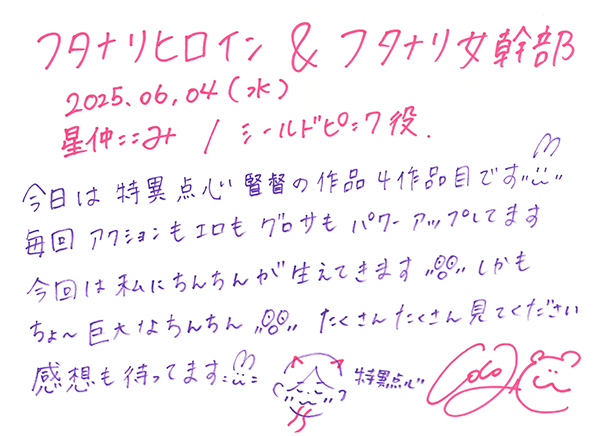 フタナリヒロイン & フタナリ女幹部
2025.06.04(水)
星仲ここみ / シールドピンク役.
今日は 特異点心 監督の作品 4作品目です
毎回 アクションもエロも グロサも パワーアップしてます
今回は 私にちんちんが 生えてきます しかも
ちょ〜 巨大なちんちん たくさんたくさん見てください
感想も待ってます
特異点心